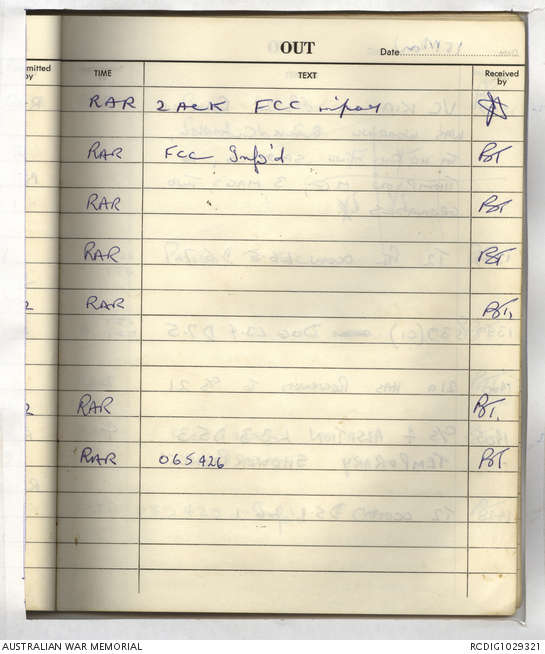 OUT
Date
mitted by
TIME
TEXT
Received by
RAR 2 ACK FCC
RAR FCC Info'd BT
RAR BT
RAR BT
2 RAR BT,
2 RAR BT,
RAR 065426 BT
AUSTRALIAN WAR MEMORIAL
RCDIG1029321